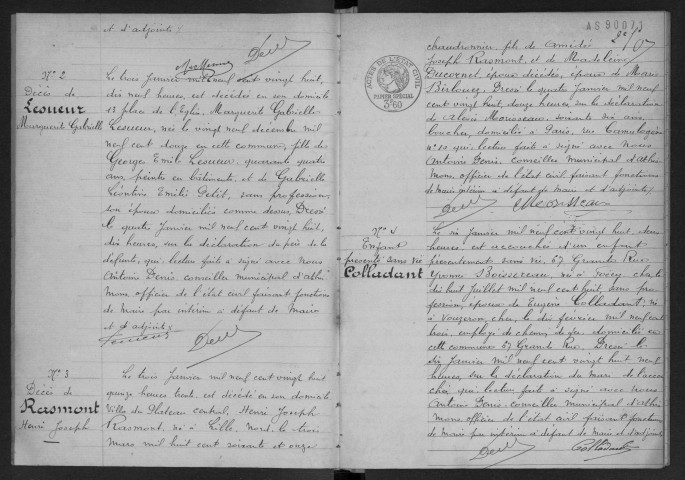 et d'adjoints
N° 2
Décès de
Lesueur
Marguerite Gabrielle
Le trois Janvier mil neuf cent vingt huit,
dix neuf heures, est décédée en son domicile
place de l'Eglise, Marguerite Gabrielle
Lesueur, née le vingt neuf decembre mil
neuf cent douze en cette commune, fille de
Georges Emile Lesueur, quarante quatre
ans, peintre en bâtiments, et de Gabrielle
Léontine Emilie Petit, sans profession,
son épouse domiciliés comme dessus, Dressé
le quatre Janvier mil neuf cent vingt huit,
dix heures, sur la déclaration du père de la
défunte, qui, lecture faite a signé avec Nous
Antoine Denis conseiller municipal d'Athis
Mons, officier de l'état civil faisant fonctions
de Maire par intérim à défaut de Maire
et d'adjoints
Lesueur
N° 3
Décès de
Rasmont
Henri Joseph
Le trois Janvier mil neuf cent vingt huit
quinze heures trente, est décédé en son domicile
Villa du Plateau central, Henri Joseph
Rasmont, né à Lille, Nord, le trois
Mars mil huit cent soixante et onze
AS 9001
ACTES DE L'ETAT CIVIL
PAPIER SPECIAL
3f60
chaudronnier, fils de Amédée
Joseph Rasmont, et de Madeleine
Ducornet époux décédés, époux de Marie
Dressé le quatre Janvier mil neuf
cent vingt huit, douze heures, sur la déclaration
de Alexis Morisseau, soixante six ans,
domicilié à Paris, rue
n° 10 qui, lecture faite a signé avec Nous
Antoine Denis, conseiller municipal d'Athis
Mons, officier de l'état civil faisant fonctions
de Maire par intérim à défaut de Maire et d'adjoints
Morisseau
N° 4
Enfant
présenté sans vie
Colladant
Le six Janvier mil neuf cent vingt huit,
heures, est accouchée d'un enfant
présentement sans vie, 67 Grande Rue
Yvonne Boissereau, née à
dix huit Juillet mil neuf cent huit, sans pro-
fession, épouse de Eugène Colladant, né
à Vouzeron, Cher, le dix février mil neuf cent
trois, employé de chemin de fer domiciliés en
cette commune 67 Grande Rue, Dressé le
six Janvier mil neuf cent vingt huit neuf
heures, sur la déclaration du mari de l'accou-
chée qui, lecture faite a signé avec Nous
Antoine Denis conseiller municipal d'Athis
Mons, officier de l'état civil faisant fonctions
de Maire par intérim à défaut de Maire et d'adjoints
Colladant